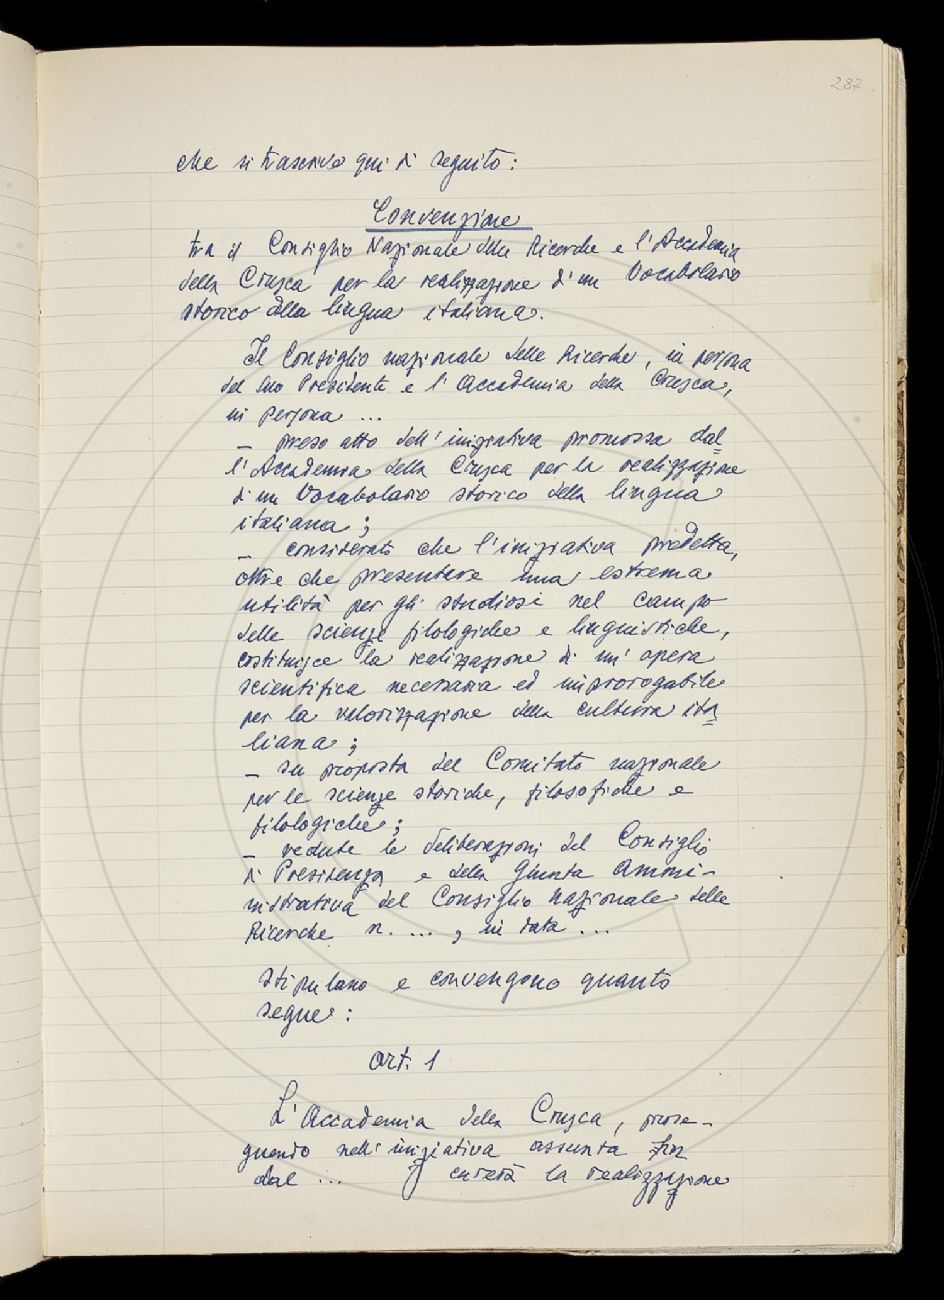 287
che si trascrive qui di seguito:
Convenzione
tra il Consiglio Nazionale delle Ricerche e l'Accademia
della Crusca per la realizzazione d'un Vocabolario
storico della lingua italiana.
Il Consiglio nazionale delle Ricerche, in persona
del suo Presidente e l'Accademia della Crusca,
in persona ...
— preso atto dell'iniziativa promossa dal=
l'Accademia della Crusca per la realizzazione
di un Vocabolario storico della lingua
italiana;
— considerato che l'iniziativa predetta,
oltre che presentare una estrema
utilità per gli studiosi nel campo
delle scienze filologiche e linguistiche,
costituisce la realizzazione di un'opera
scientifica necessaria ed improrogabile
per la valorizzazione della cultura ita=
liana;
— su proposta del Comitato nazionale
per le scienze storiche, filosofiche e
filologiche;
— vedute le deliberazioni del Consiglio
di Presidenza e della Giunta Ammi-
nistrativa del Consiglio Nazionale delle
Ricerche n. ..., in data ...
stipulano e convengono quanto
segue:
Art. 1
L'Accademia della Crusca, prose-
guendo nell'iniziativa assunta fin
dal ... curerà la realizzazione